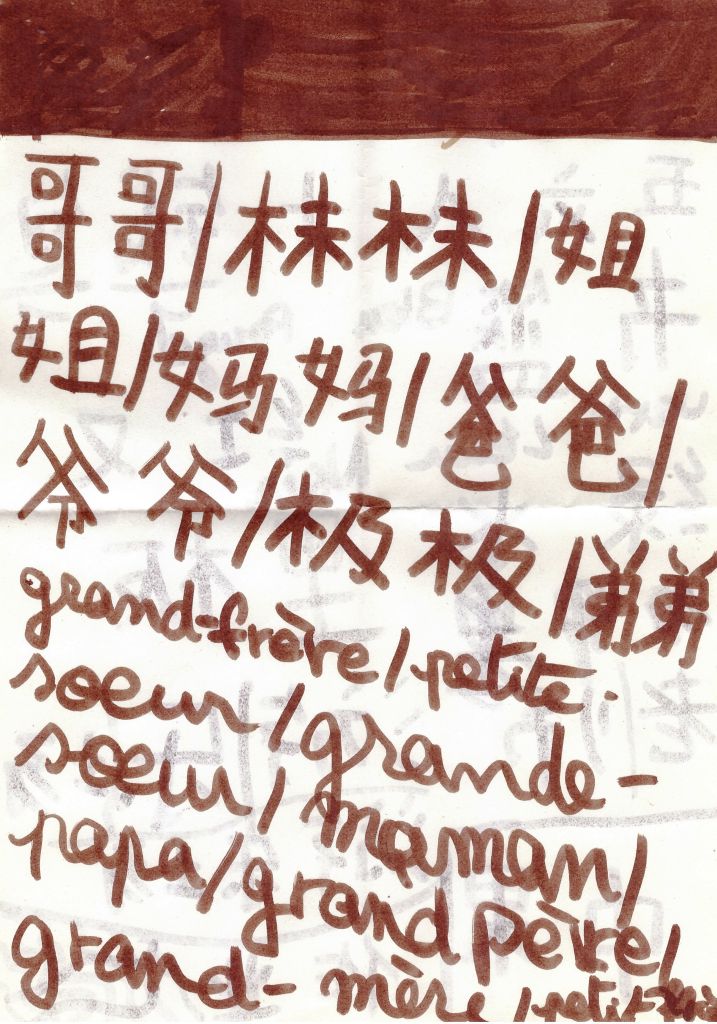 哥哥/枺枺/姐
姐/妈妈/爸爸/
爷爷/极极/弟弟
grand-frère/petite-
soeur/grande-
soeur/maman/
papa/grand père/
grand-mère/petit-